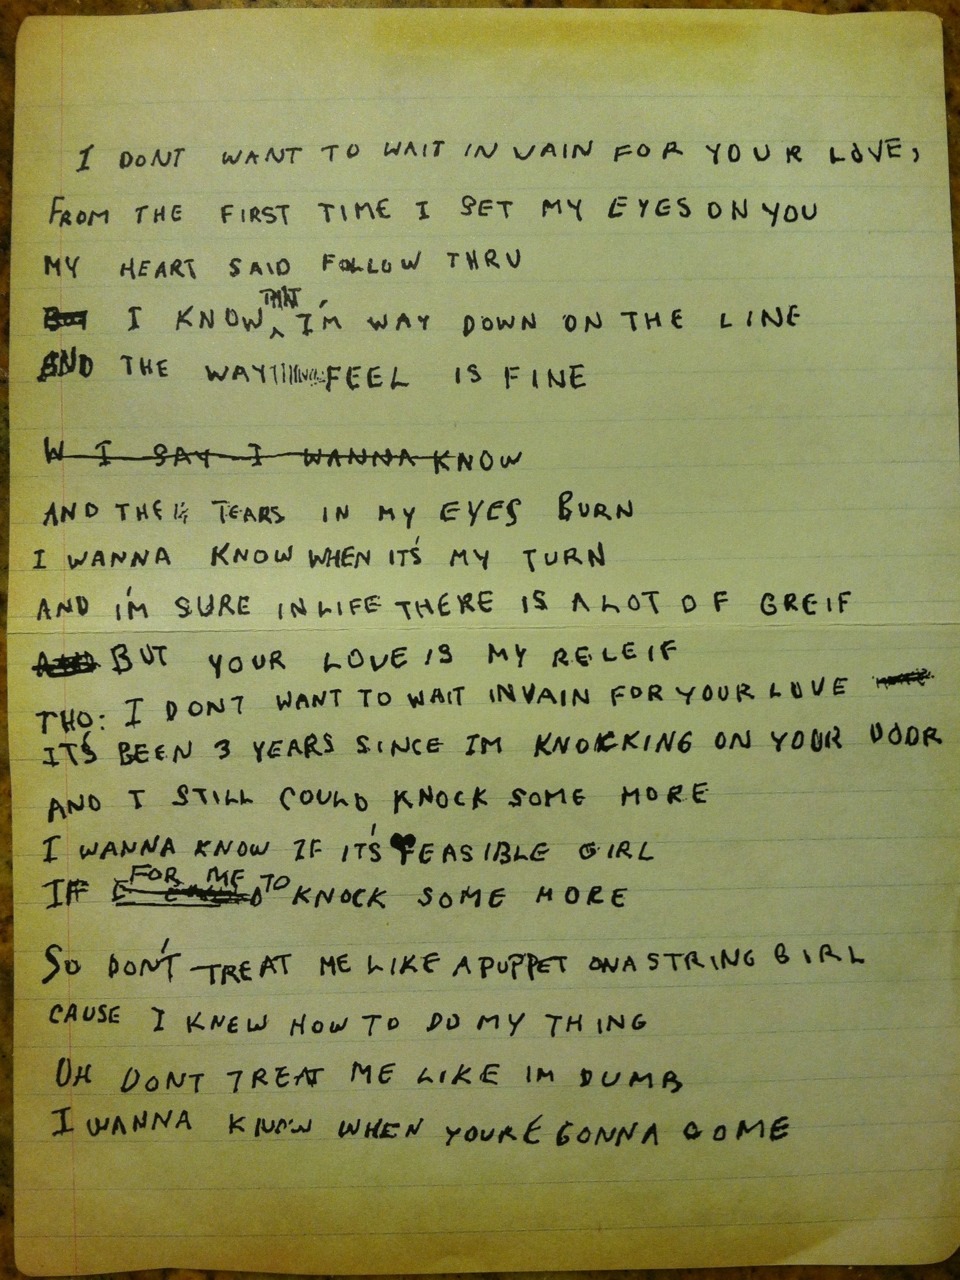 I DONT WANT TO WAIT IN VAIN FOR YOUR LOVE,
FROM THE FIRST TIME I SET MY EYES ON YOU
MY HEART SAID FOLLOW THRU
BUT I KNOW THAT I'M WAY DOWN ON THE LINE
AND THE WAY FEEL IS FINE
W I SAY I WANNA KNOW
AND THE TEARS IN MY EYES BURN
I WANNA KNOW WHEN IT'S MY TURN
AND I'M SURE IN LIFE THERE IS A LOT OF GREIF
AND BUT YOUR LOVE IS MY RELEIF
THO: I DONT WANT TO WAIT IN VAIN FOR YOUR LOVE
IT'S BEEN 3 YEARS SINCE IM KNOKKING ON YOUR DOOR
AND I STILL COULD KNOCK SOME MORE
I WANNA KNOW IF IT'S FEASIBLE GIRL
IF FOR ME TO KNOCK SOME MORE
SO DON'T TREAT ME LIKE A PUPPET ON A STRING GIRL
CAUSE I KNEW HOW TO DO MY THING
OH DONT TREAT ME LIKE IM DUMB
I WANNA KNOW WHEN YOUR'E GONNA COME